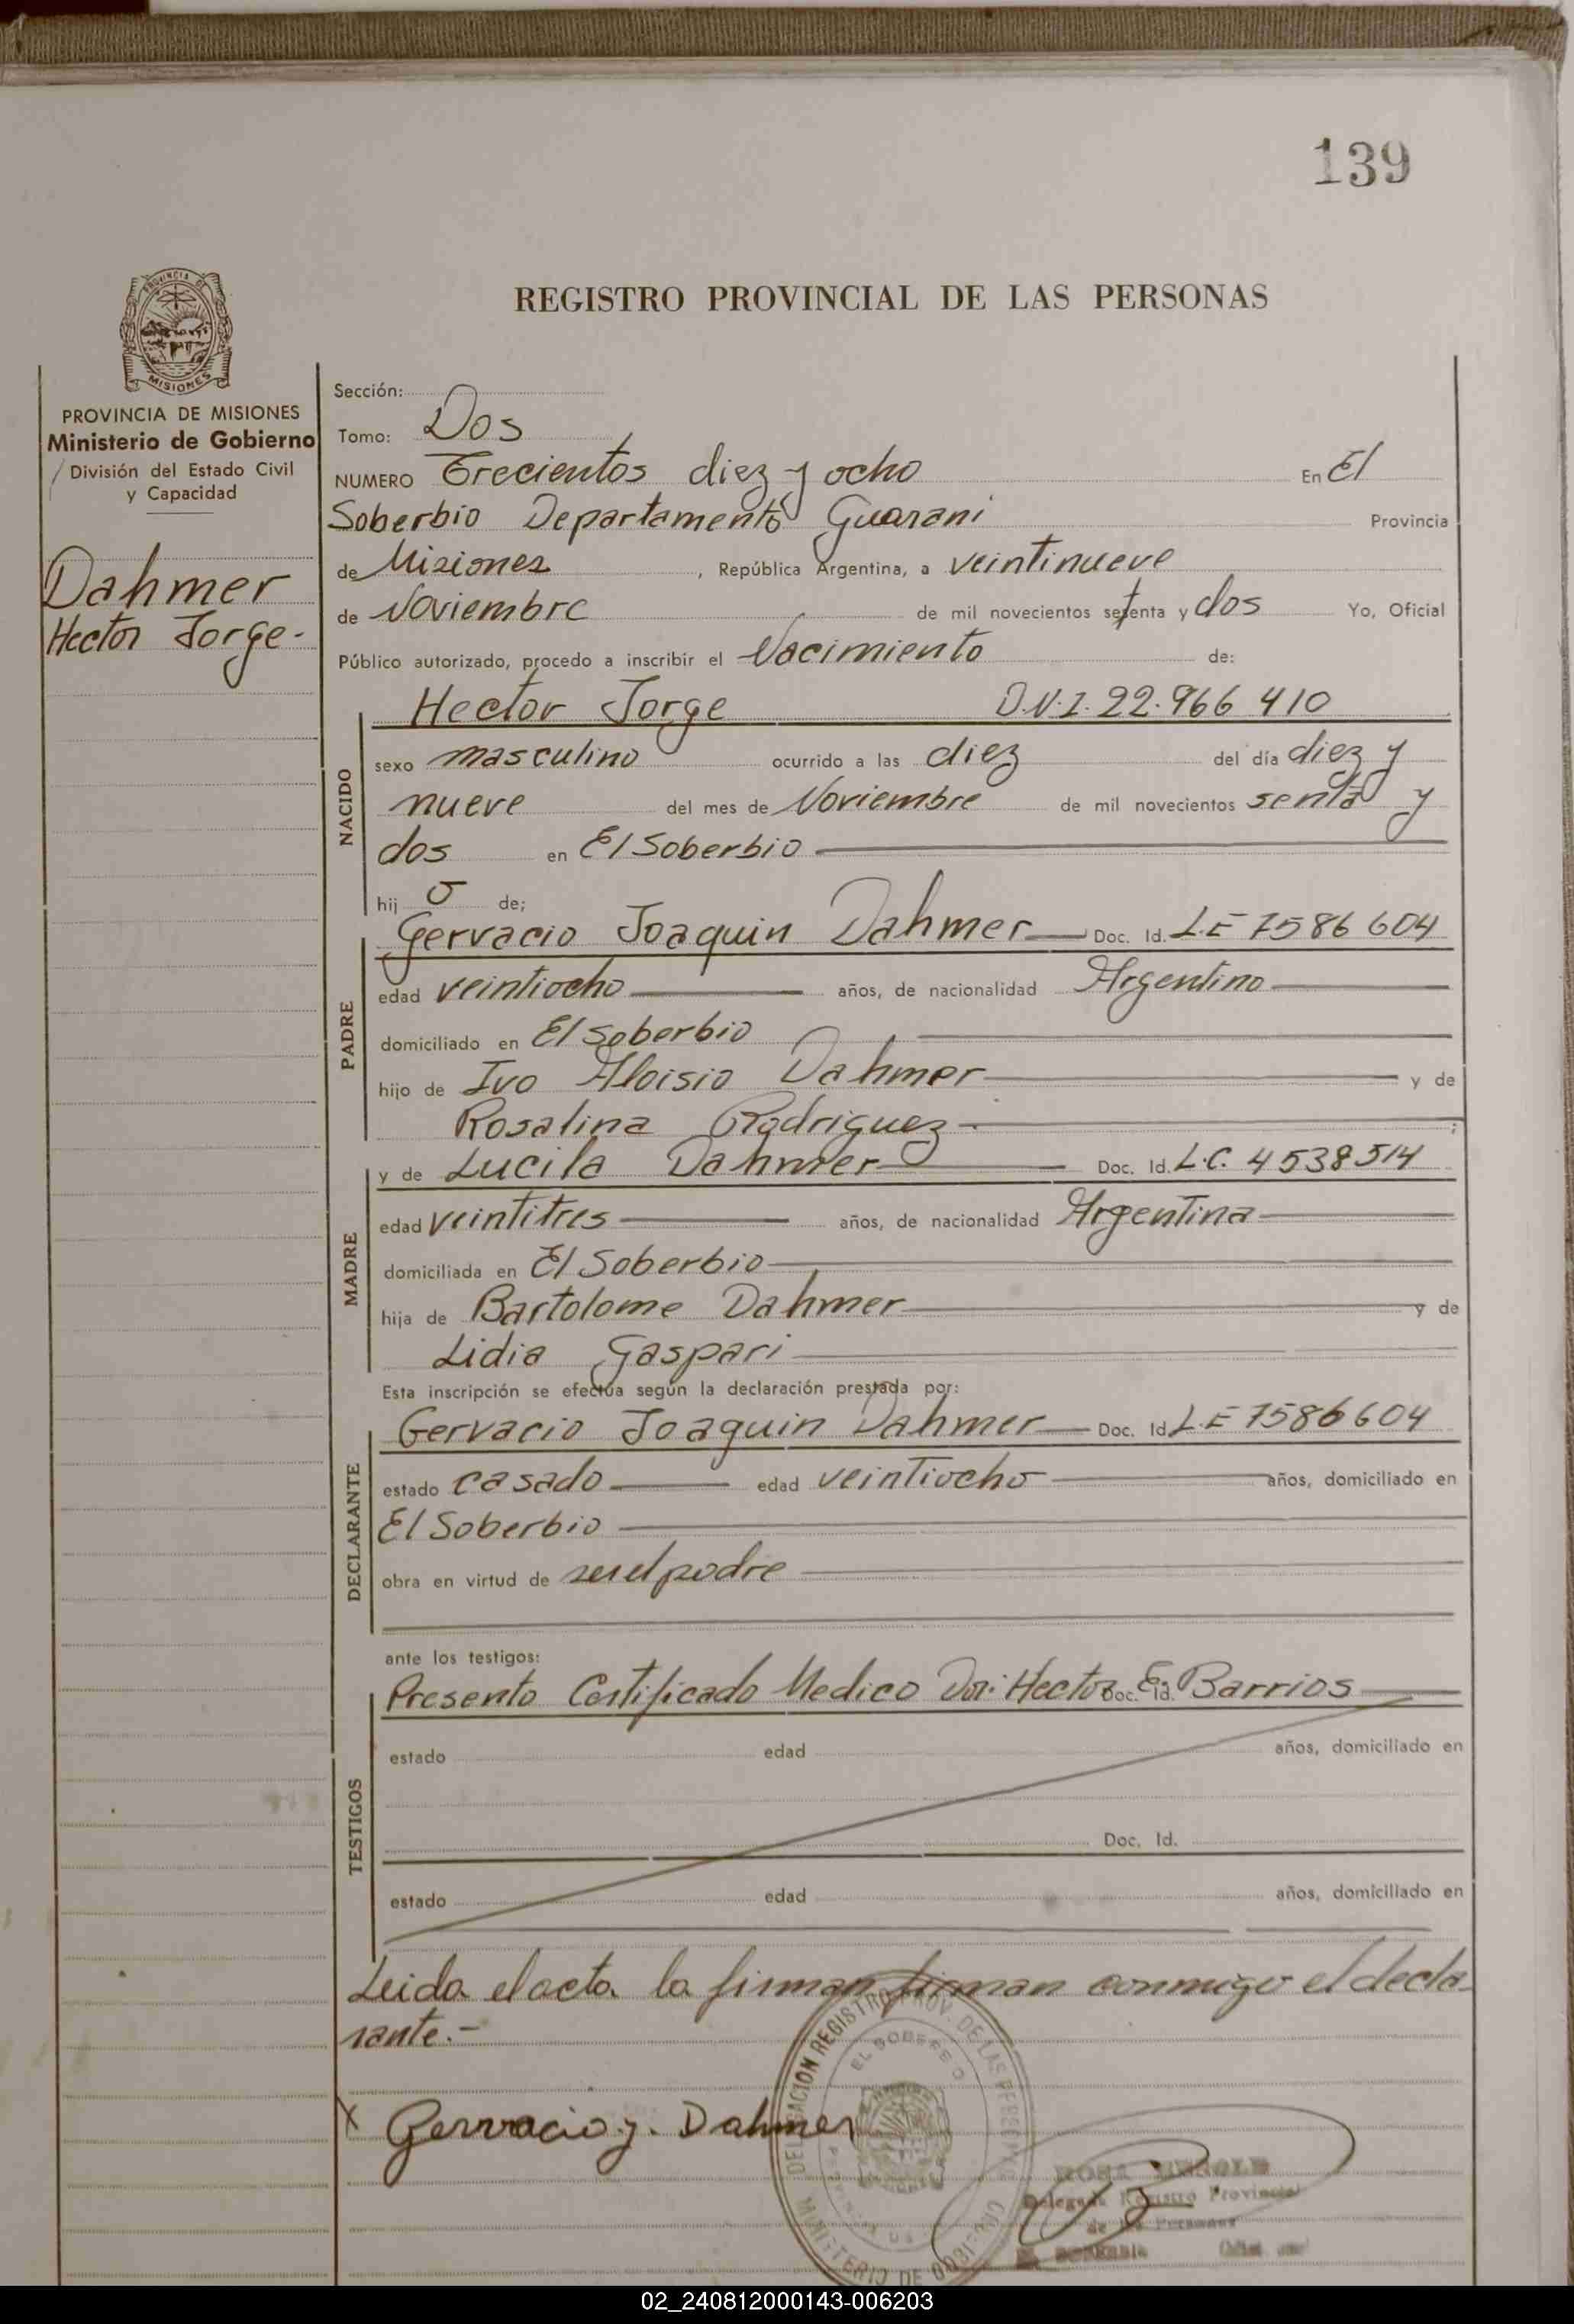 139
PROVINCIA DE
MISIONES
PROVINCIA DE MISIONES
Ministerio de Gobierno
División del Estado Civil
y Capacidad
Dahmer
Hector Jorge-
REGISTRO PROVINCIAL DE LAS PERSONAS
Sección:
Tomo: Dos
NUMERO Trecientos diez y ocho En El
Soberbio Departamento Guarani Provincia
de Misiones, República Argentina, a veintinueve
de Noviembre de mil novecientos setenta y dos Yo, Oficial
Público autorizado, procedo a inscribir el Nacimiento de:
Hector Jorge D.N.I. 22.966 410
NACIDO
sexo masculino ocurrido a las diez del día diez y
nueve del mes de Noviembre de mil novecientos senta y
dos en El Soberbio
hij o de;
PADRE
Gervacio Joaquin Dahmer Doc. Id. L.E 7586 604
edad veintiocho años, de nacionalidad Argentino
domiciliado en El Soberbio
hijo de Ivo Aloisio Dahmer y de
Rosalina Rodriguez-;
MADRE
y de Lucila Dahmer Doc. Id. L.C. 4538514
edad veintitres años, de nacionalidad Argentina
domiciliada en El Soberbio
hija de Bartolome Dahmer y de
Lidia Gaspari
Esta inscripción se efectúa según la declaración prestada por:
DECLARANTE
Gervacio Joaquin Dahmer Doc. Id. L.E 7586604
estado casado edad veintiocho años, domiciliado en
El Soberbio
obra en virtud de ser el padre
ante los testigos:
TESTIGOS
Presento Certificado Medico Dor: Hector E. Barrios Doc. Id.
estado edad años, domiciliado en
Doc. Id.
estado edad años, domiciliado en
Leida el acta la firman firman conmigo el decla-
rante.-
X Gervacio J. Dahmer
DELEGACION REGISTRO PROV. DE LAS PERSONAS
EL SOBERBIO
MINISTERIO DE GOBIERNO
PROVINCIA DE
ROSA
Delegada Registro Provincial
de las Personas
EL SOBERBIO
02_240812000143-006203